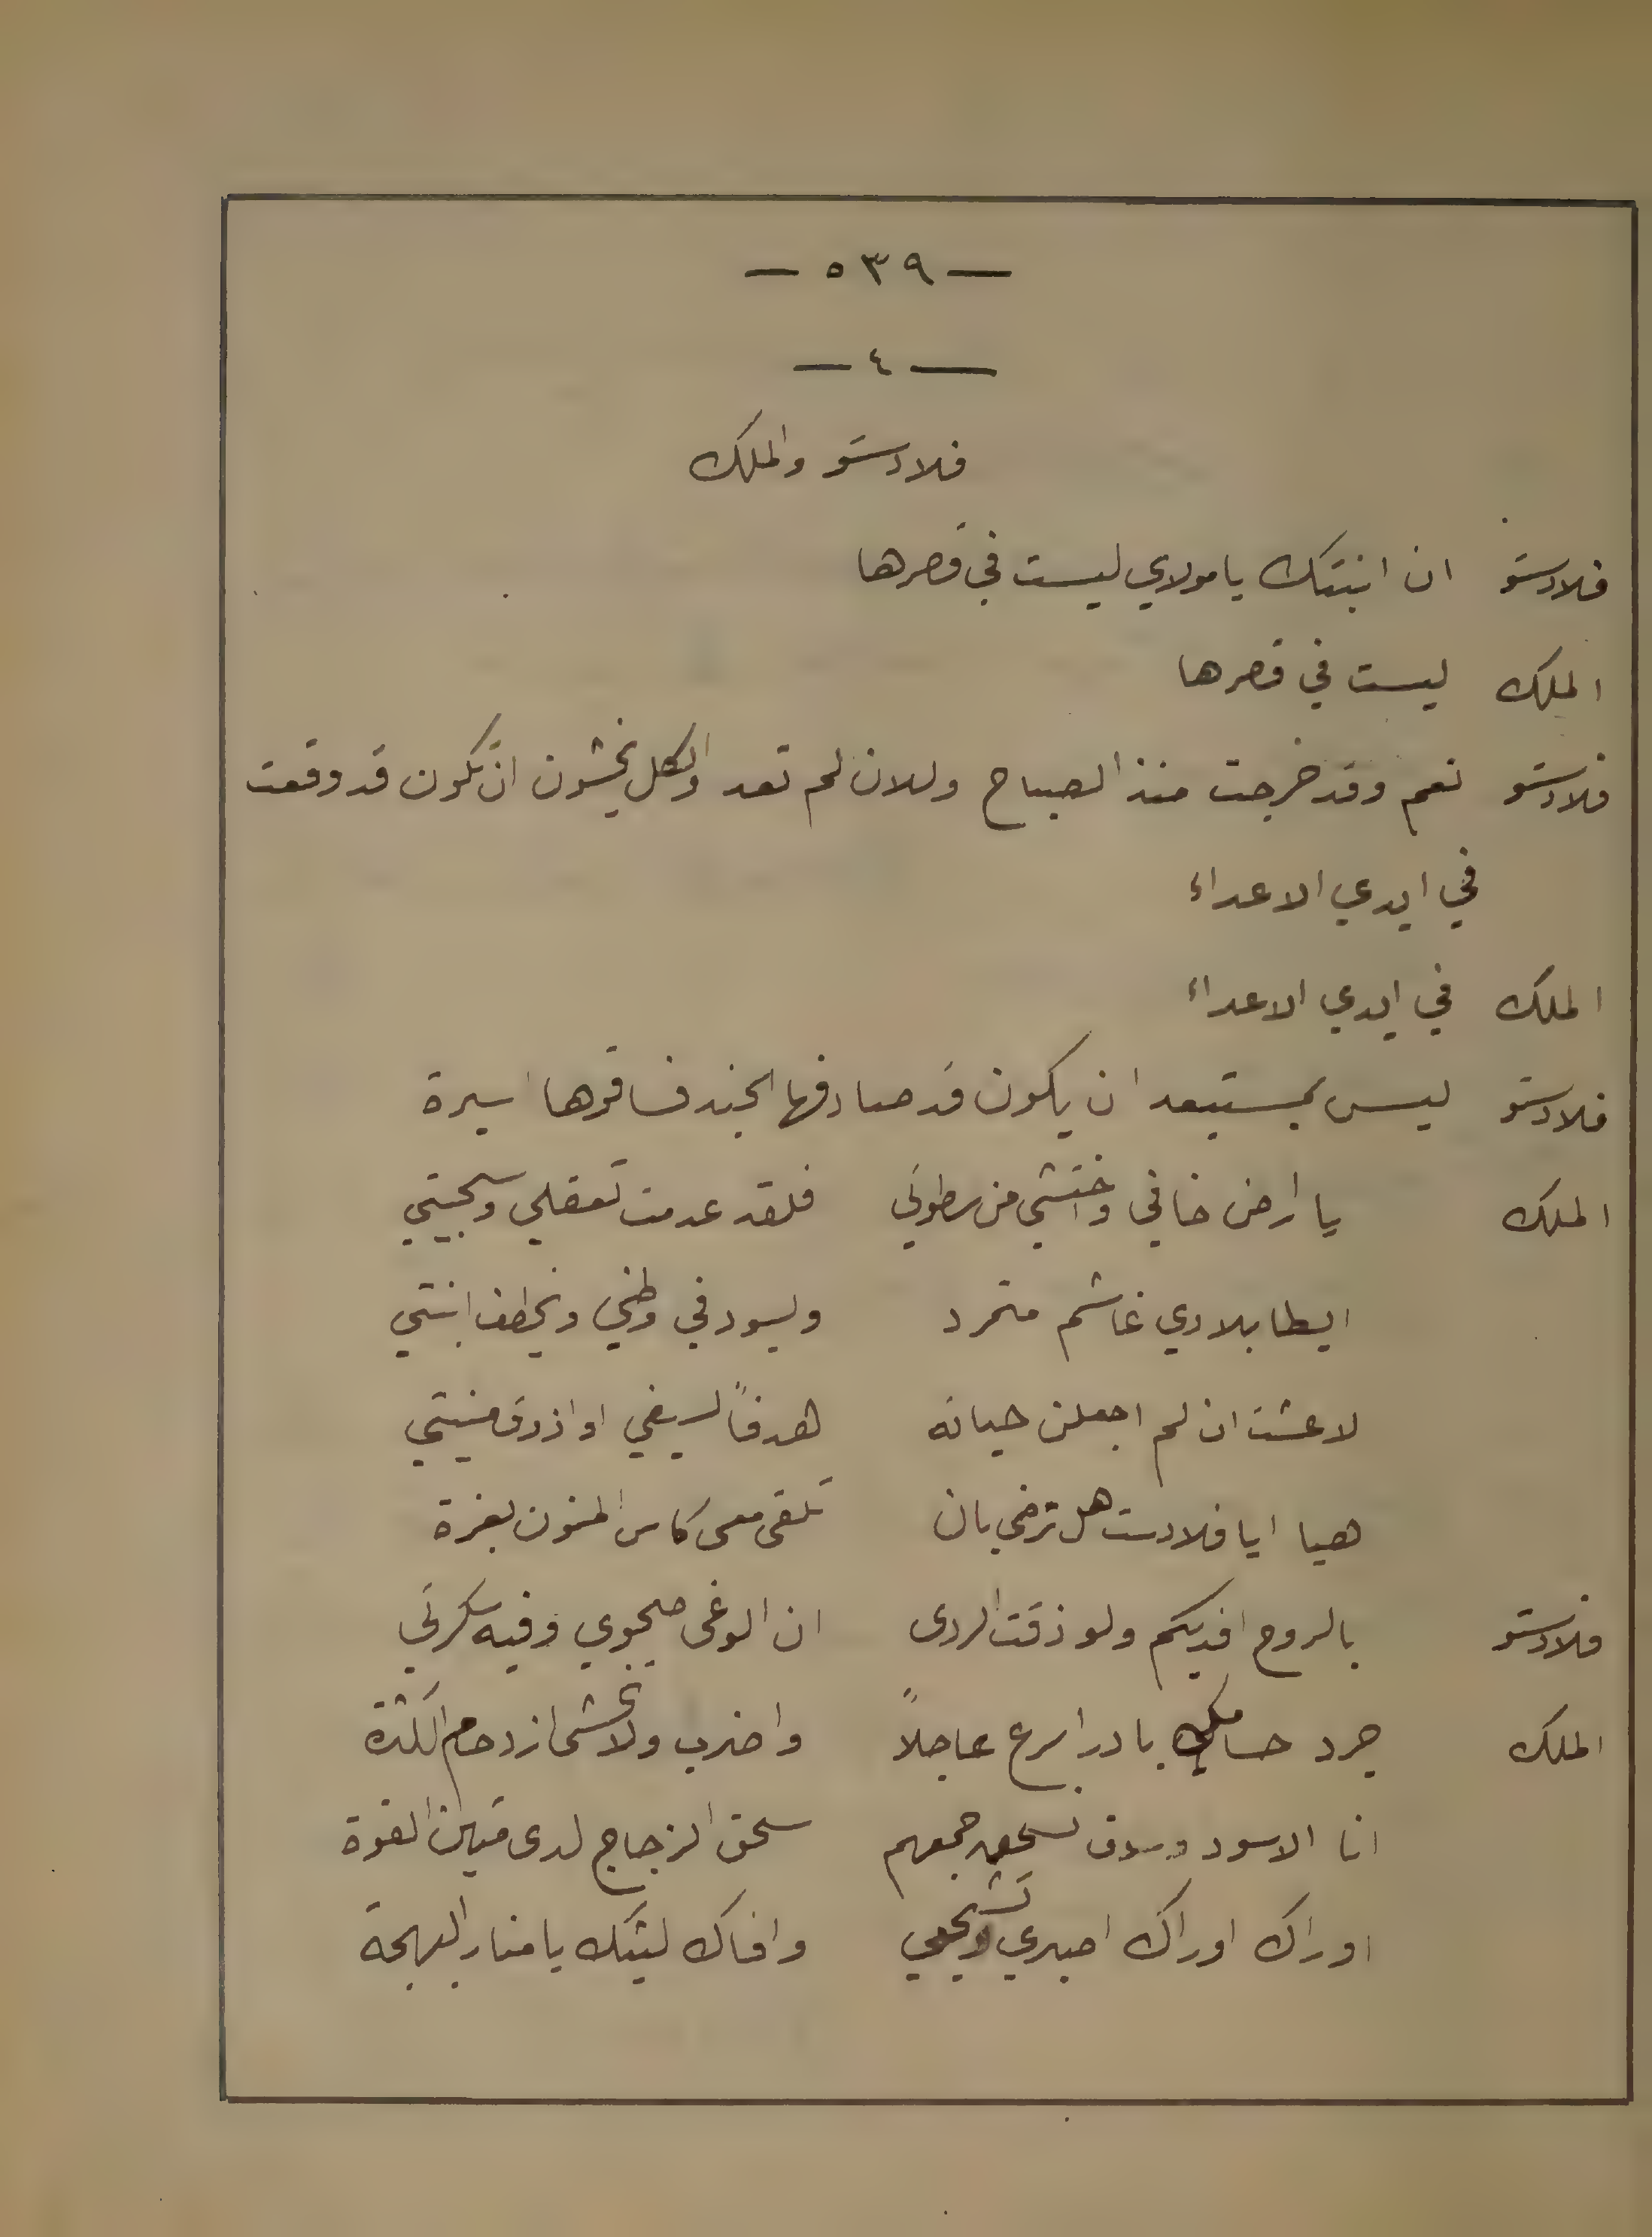 — ٥٣٩ —
— ٤ —
فلادستو والملك
فلادستو ان ابنتك يا مولاي ليست في قصرها
الملك ليست في قصرها
فلادستو نعم وقد خرجت منذ الصباح وللان لم تعد والكل يخشون ان تكون قد وقعت
في ايدي الاعداء
الملك في ايدي الاعداء
فلادستو ليس بمستبعد ان يكون قد صادفها الجند فساقوها اسيرة
الملك يا ارض خافي واختشي من سطوتي فلقد عدمت تعقلي وسجيتي
ايطا بلادي غاشم متمرد ويسود في وطني ويخطف ابنتي
لا عشت ان لم اجعلن حياته هدفاً لسيفي او اذوق منيتي
هيا ايا فلادست هل ترضى بان تلقى معي كاس المنون بغرة
فلادستو بالروح افديكم ولو ذقت الردى ان الوغى صحوي وفيه سكرتي
الملك جرد حسامك بادر اسرع عاجلاً واضرب ولا تخشى ازدحام الكثرة
انا الاسود وسوف نسحق جمعهم سحق الزجاج لدى القوة
اوراك اوراك اصبري وافاك ليثك يا منار البهجة